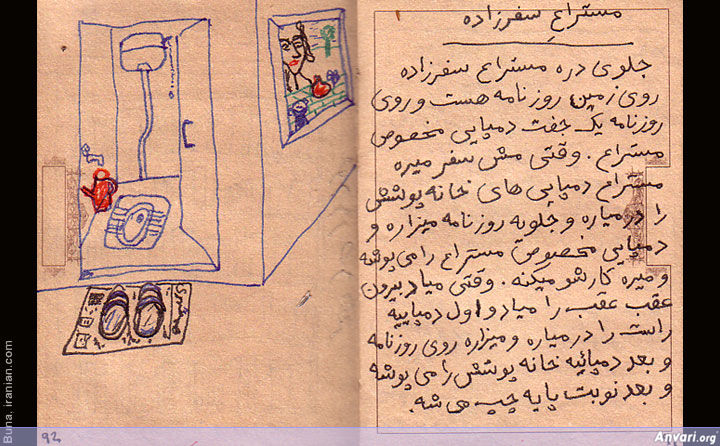 مستراح سفرزاده
جلوی دره مستراح سفرزاده
روی زمین روزنامه هست و روی
روزنامه یک جفت دمپایی مخصوص
مستراح. وقتی مش سفر میره
مستراح دمپایی های خانه پوشش
را در میاره و جلویه روزنامه میزاره و
دمپایی مخصوص مستراح را می پوشه
و میره کارشو میکنه. وقتی میاد بیرون
عقب عقب را میاد و اول دمپاییه
راست را در میاره و میزاره روی روزنامه
و بعد دمپائیه خانه پوشش را می پوشه
و بعد نوبت پایه چپ می شه.
92
Buna. iranian.com
Anvari.org